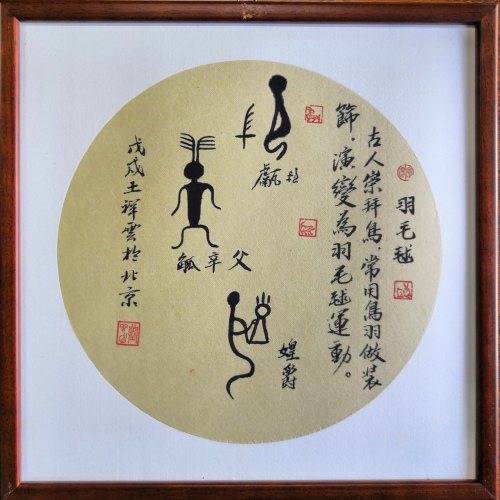 羽毛毬
古人崇拜鳥，常用鳥羽做装
飾，演變為羽毛毬運動。
甗
父辛觚
媓爵
戊戌土祥雲於北京